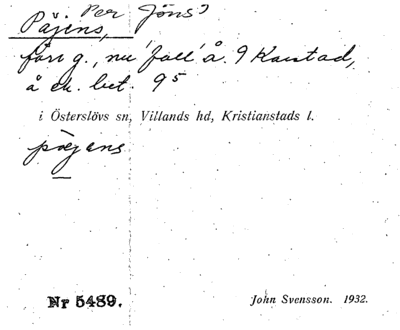 Per Jöns?
Päjens,
förr g., nu 'fall' å 9 Karstad,
å ek. bet. 9⁵
i Österslövs sn, Villands hd, Kristianstads l.
pæjens
Nr 5489.
John Svensson. 1932.